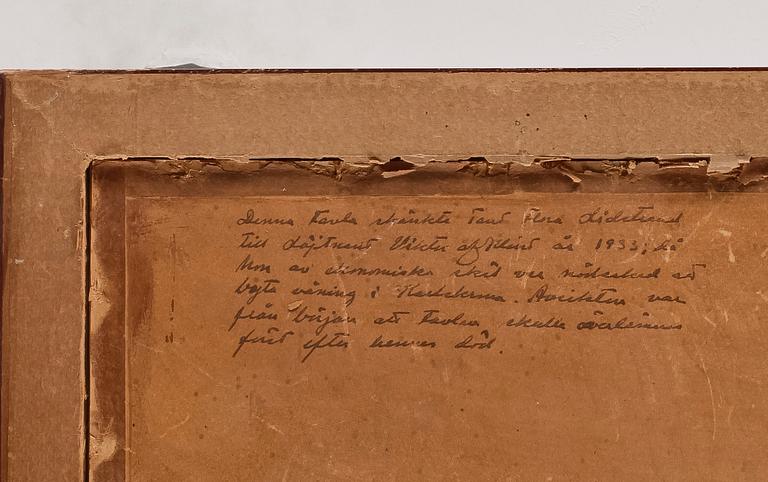 Denna tavla skänkte Tant Flora Lidstrand
till Löjtnant Viktor af Klint år 1933; då
hon av ekonomiska skäl var nödsakad att
byta våning i Karlskrona. Avsikten var
från början att tavlan skulle överlämnas
först efter hennes död.